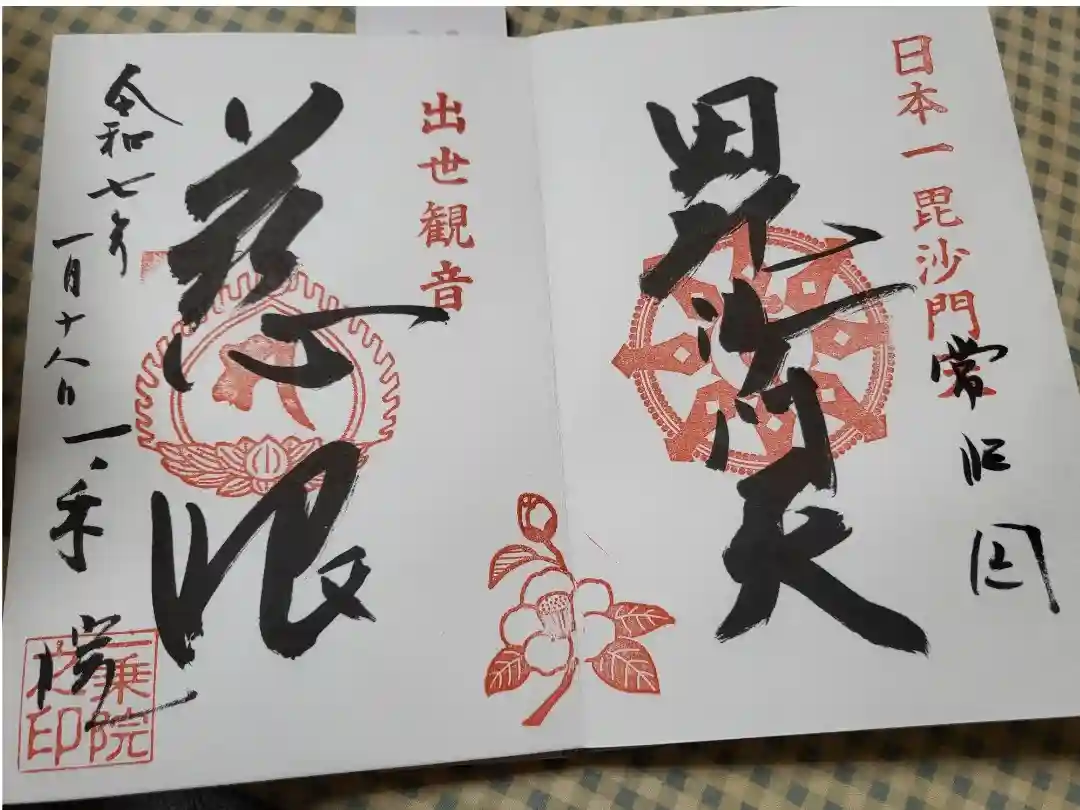 日本一毘沙門天
常陸国
毘沙門天
出世観音
慈眼
令和七年
一月十八日
一乗院
一乗院
之印